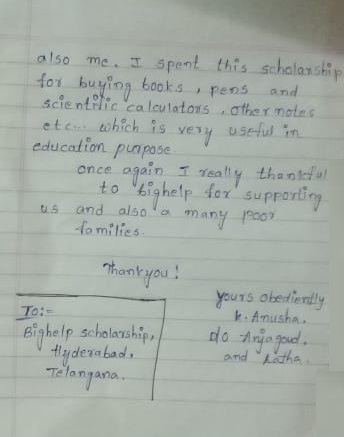 also me. I spent this scholarship
for buying books, pens and
scientific calculators, other notes
etc... which is very useful in
education purpose.
once again I really thankful
to Bighelp for supporting
us and also a many poor
families.
Thankyou!
yours obediently
k. Anusha.
d/o Anjagoud,
and Latha.
To:-
Bighelp scholarship,
Hyderabad,
Telangana.